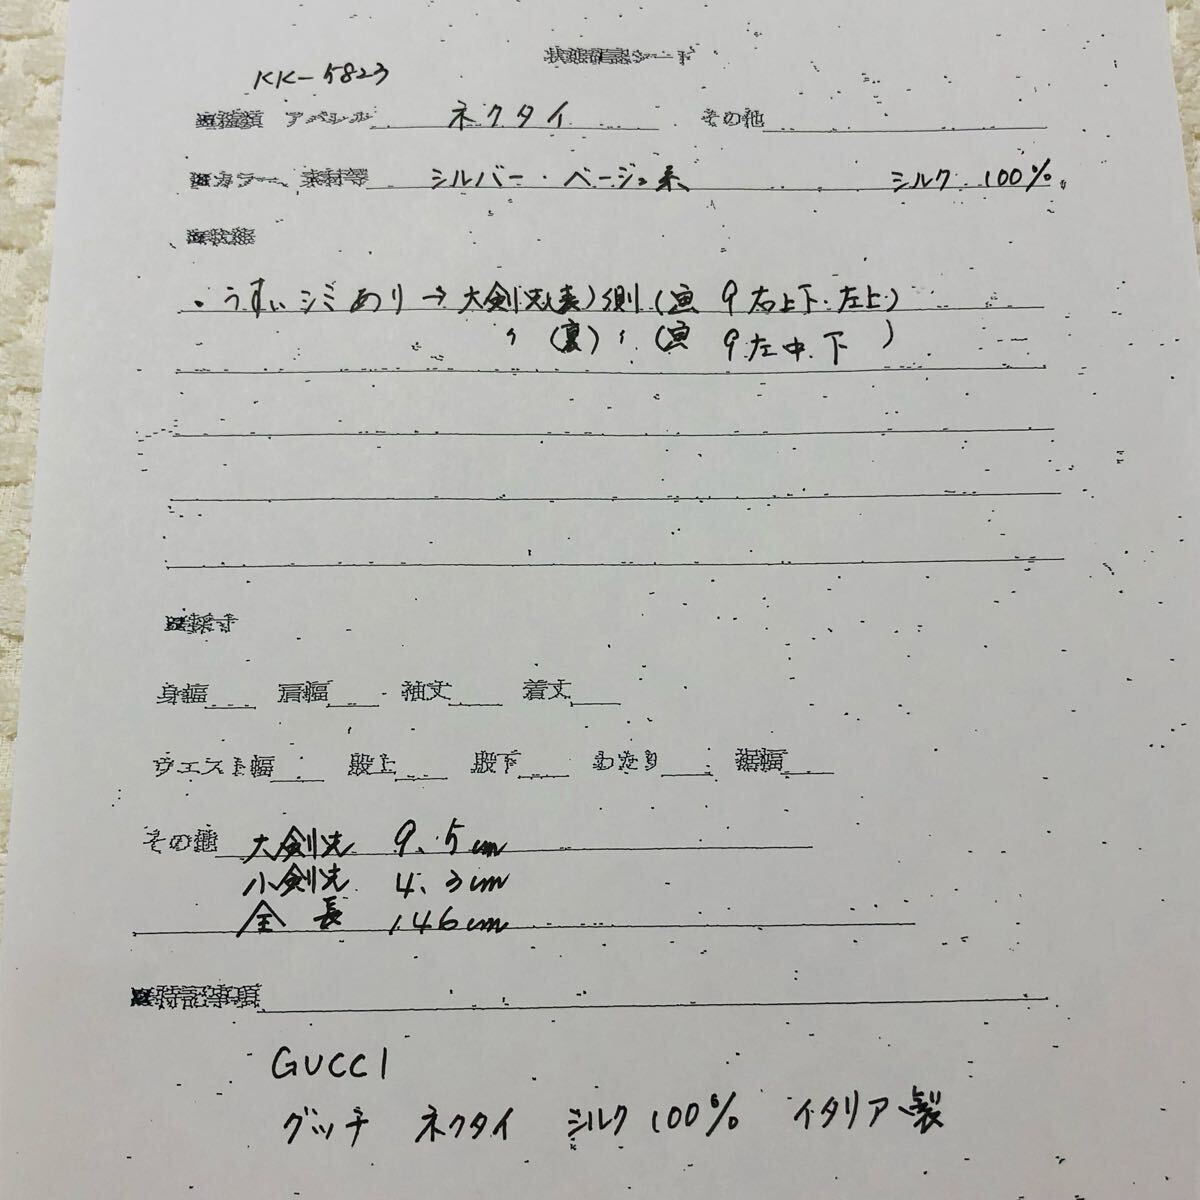 状態確認シート
KK-5823
※種類 アパレル ネクタイ その他
※カラー、素材等 シルバー・ベージュ系、 シルク 100%。
※状態
・うすいシミあり→大剣先(表)側(画 9 右上下・左上)
〃 (裏) 〃 (画 9 左中.下 )
※採寸
身幅 肩幅 袖丈 着丈
ウエスト幅 股上 股下 わたり 裾幅
その他 大剣先 9.5cm
小剣先 4.3cm
全長 146cm
※特記事項
GUCCI
グッチ ネクタイ シルク 100% イタリア製